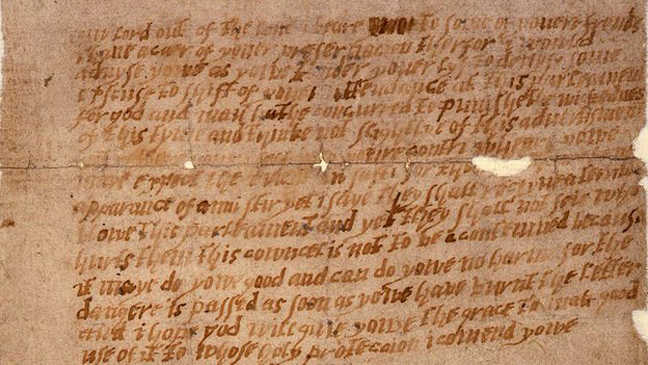 my lord out of the love i beare to some of youere frends
i have a caer of youer preseruacion therfor i would
advyse yowe as yowe tender youer lyf to devyse some
excuse to shift of youer attendance at this parleament
for god and man hathe concurred to punishe the wickednes
of this tyme and thinke not slightlye of this advertisment
youre contri wheare yowe
maye expect the event in safti for
apparance of anni stir yet i saye they shall receyve a terrible
blowe this parleament and yet they shall not seie who
hurts them this cowncel is not to be acontemned becaus
it maye do yowe good and can do yowe no harme for the
dangere is passed as soon as yowe have burnt the letter
and i hope god will give yowe the grace to mak good
use of it to whose holy proteccion i comend yowe